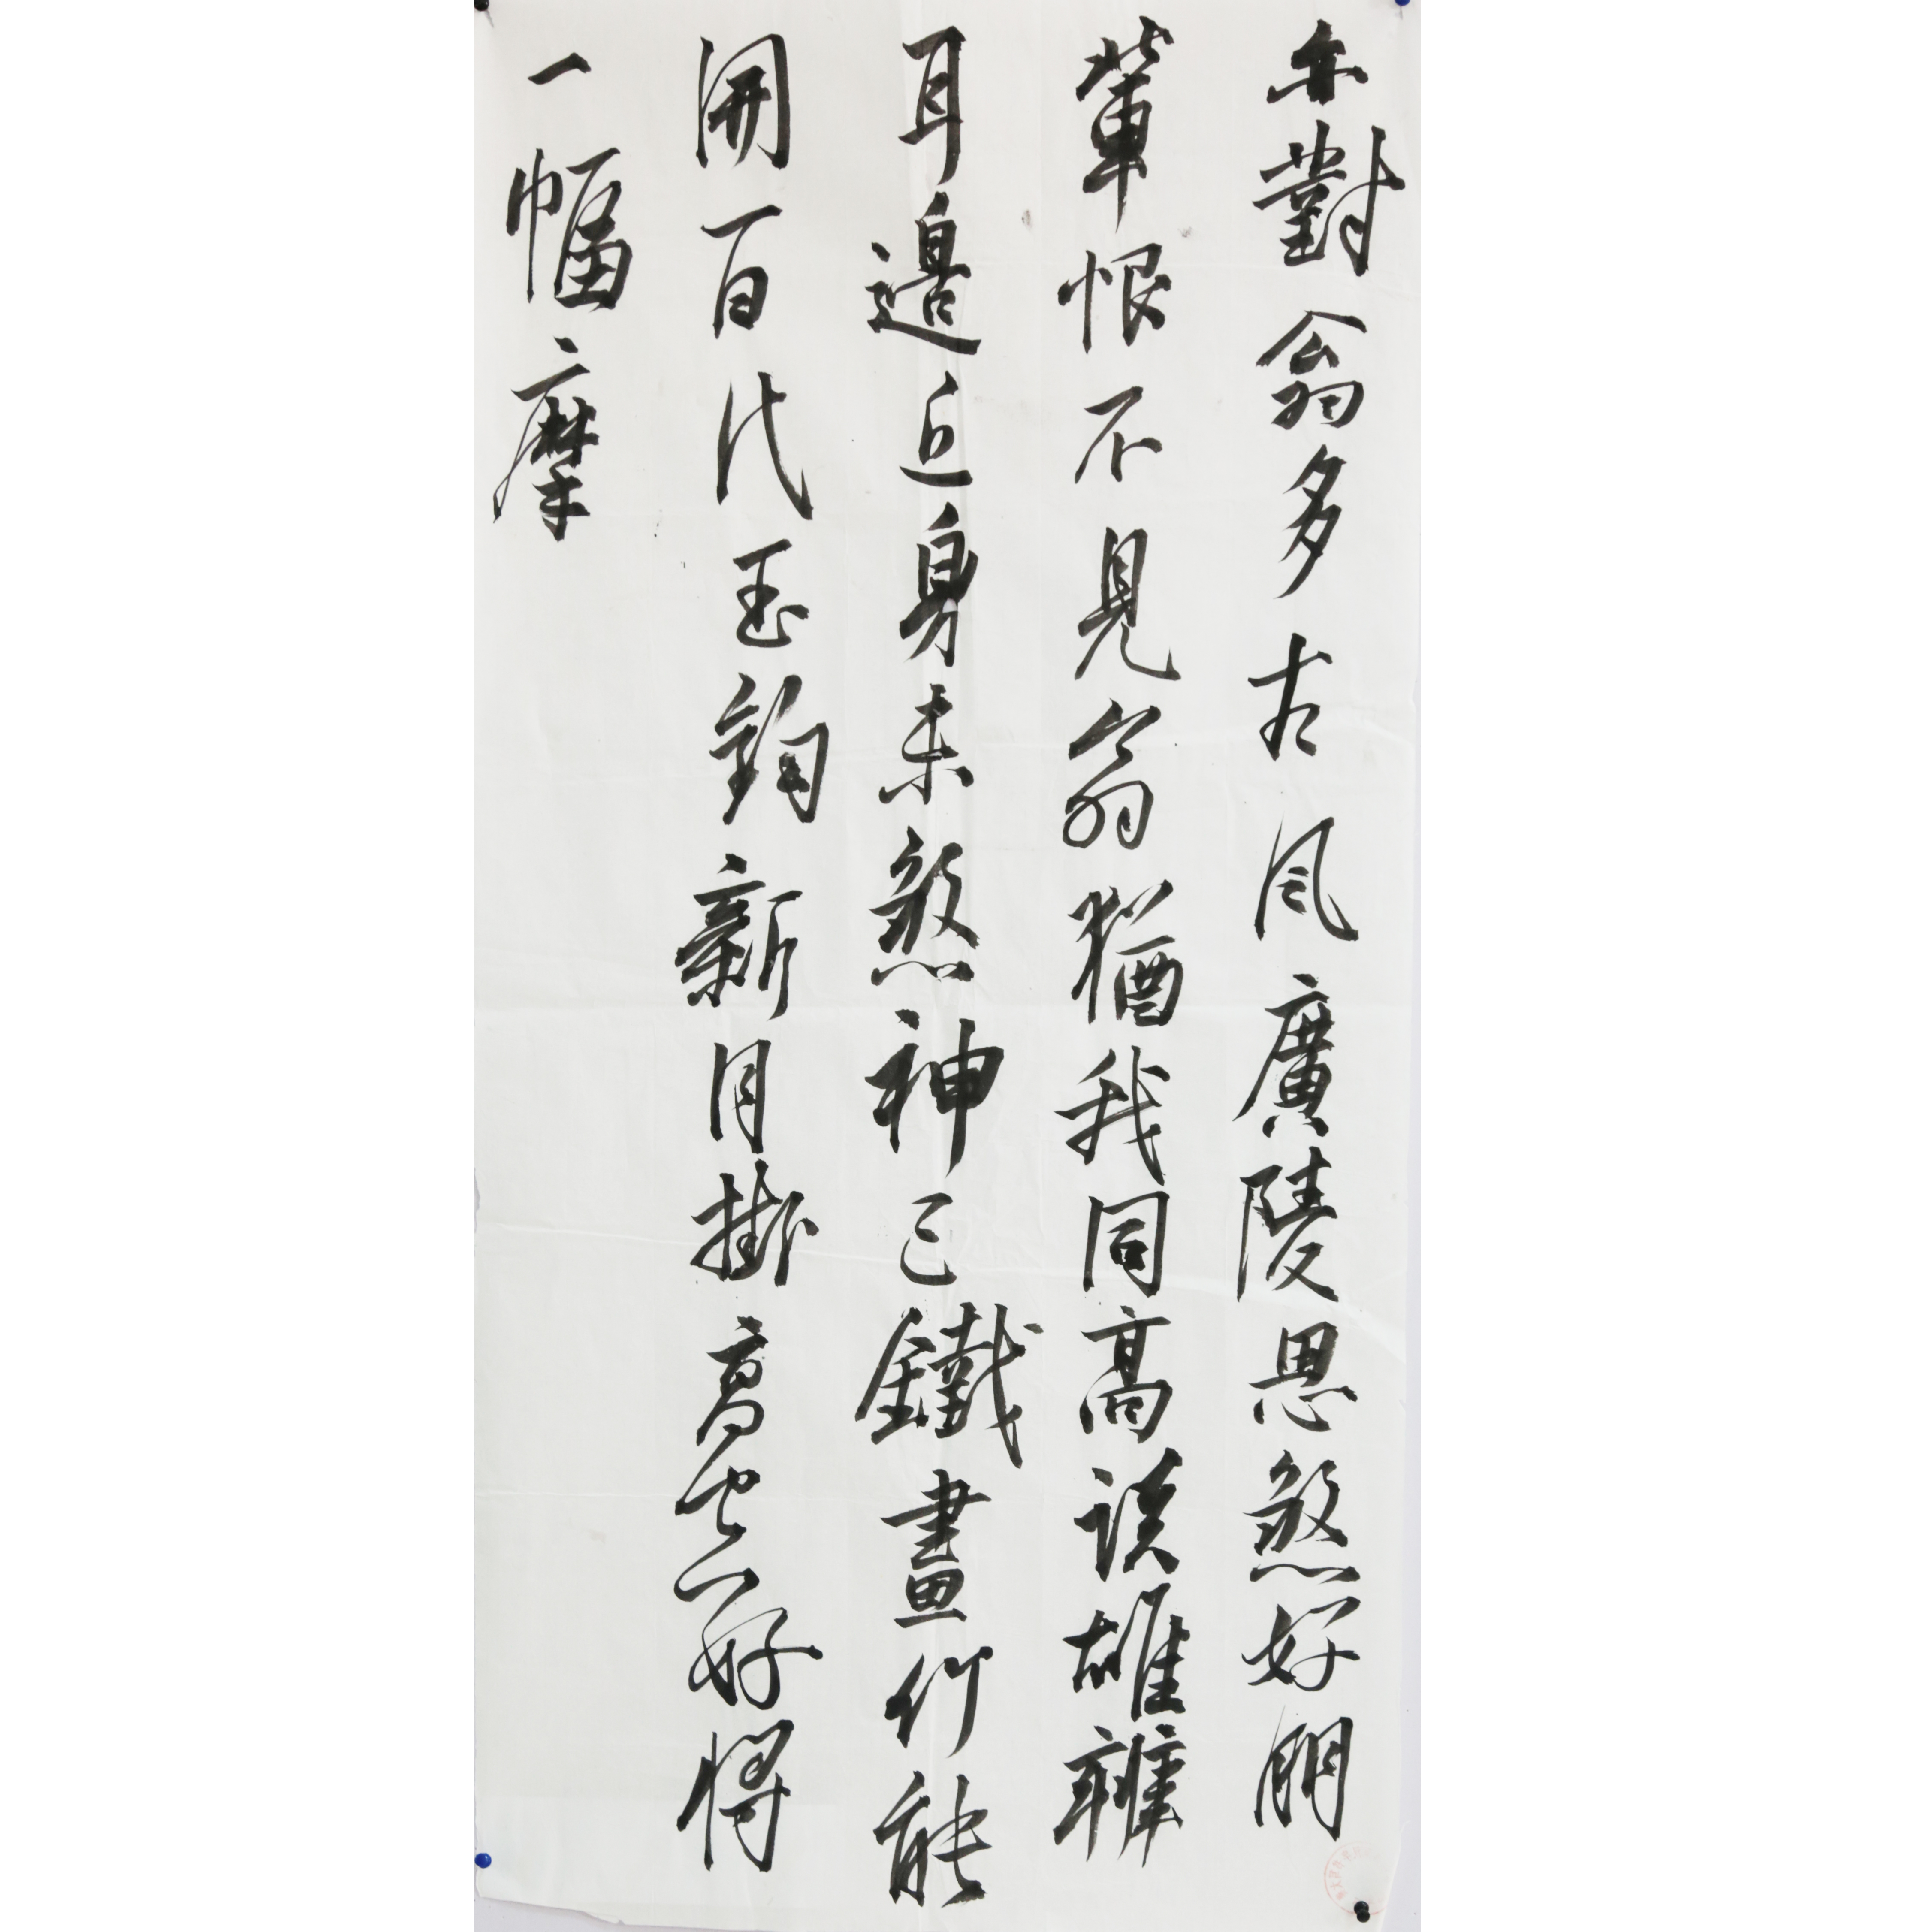 每對翁多古風廣陵思煞好朋
輩恨不見翁猶我同高談雄辯
耳邊近身未煞神已鐵畫行能
開百代玉鉤新月掛高空好將
一幅摩